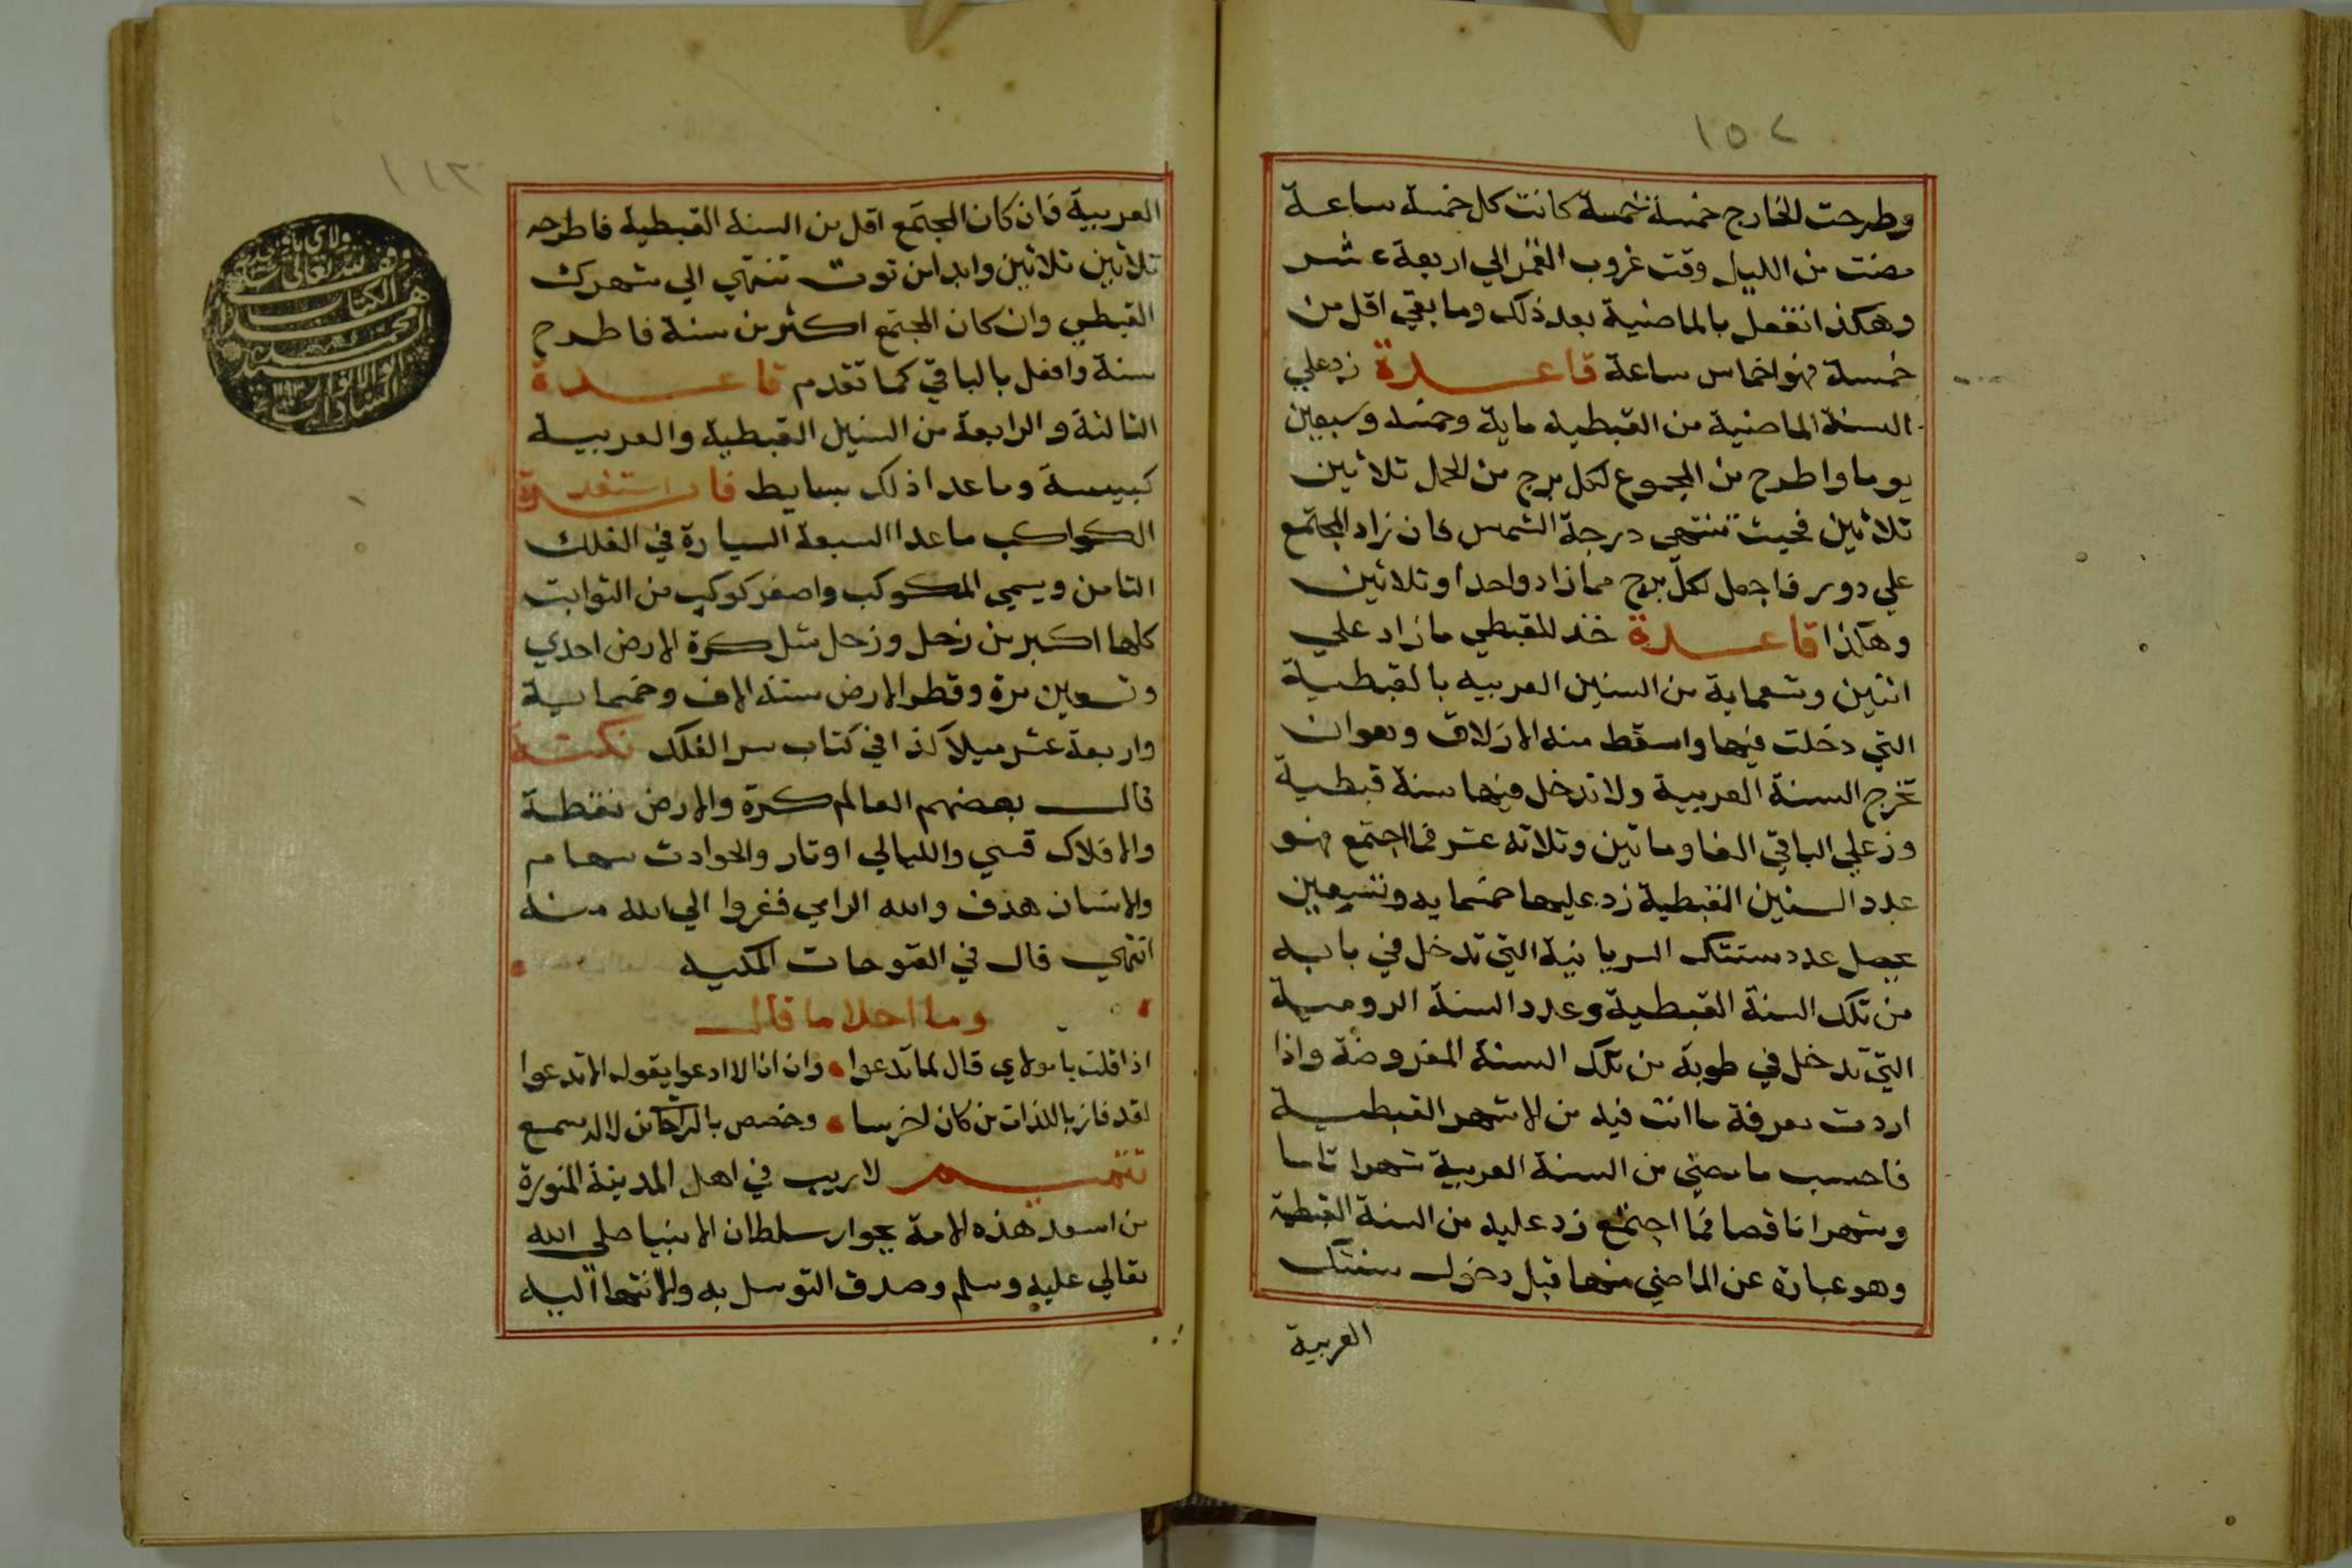 ١٥٢
وطرحت الخارج خمسة خمسة كانت كل خمسة ساعة
مضت من الليل وقت غروب القمر الي اربعة عشر
وهكذا تفعل بالماضية بعد ذلك وما بقي اقل من
خمسة فهو اخماس ساعة قاعدة زد علي
السنة الماضية من القبطيه ماية وخمسة وسبعين
يوما واطرح من المجموع لكل برج من الحمل تلاثين
تلاثين فحيث تنتهي درجة الشمس فان زاد المجتمع
علي دور فاجعل لكل برج مما زاد واحدا وتلاثين
وهكذا قاعدة خذ للقبطي ما زاد علي
اثنين وتسعماية من السنين العربيه بالقبطية
التي دخلت فيها واسقط منه الازلاق وهو ان
تخرج السنة العربية ولا تدخل فيها سنة قبطية
وزد علي الباقي الفا وماتين وتلاته عشر فما اجتمع فهو
عدد السنين القبطية زد عليها خمسمايه وتسعين
يحصل عدد سنتك السريانية التي تدخل في بابه
من تلك السنة القبطية وعدد السنة الرومية
التي تدخل في طوبة من تلك السنة المفروضة واذا
اردت معرفة ما انت فيه من الاشهر القبطية
فاحسب ما مضي من السنة العربية شهرا تاما
وشهرا ناقصا فما اجتمع زد عليه من السنة القبطية
وهو عبارة عن الماضي منها قبل دخول سنتك
العربية
١١٣
العربية فان كان المجتمع اقل من السنة القبطية فاطرحه
تلاثين تلاثين وابدا من توت تنتهي الي شهرك
القبطي وان كان المجتمع اكثر من سنة فاطرح
سنة وافعل بالباقي كما تقدم قاعدة
الثالثة والرابعة من السنين القبطية والعربية
كبيسة وما عدا ذلك بسايط
الكواكب ما عدا السبعة السيارة في الفلك
الثامن ويسمي المكوكب واصغر كوكب من الثوابت
كلها اكبر من زحل وزحل مثل كرة الارض احدي
وتسعين مرة وقطر الارض ستة الاف وخمسماية
واربعة عشر ميلا كذا في كتاب سر الفلك نكتة
قال بعضهم العالم كرة والارض نقطة
والافلاك قسي والليالي اوتار والحوادث سهام
والانسان هدف والله الرامي ففروا الي الله منه
انتهي قال في الفتوحات المكيه
وما احلا ما قال
اذا قلت يا مولاي قال لما تدعوا وان انا لا ادعوا يقول الا تدعوا
لقد فاز باللذات من كان اخرسا وخصص بالراحات من لا له سمع
تتميم لا ريب في اهل المدينة المنورة
من اسعد هذه الامة بجوار سلطان الانبيا صلي الله
تعالي عليه وسلم وصدق التوسل به والانتما اليه